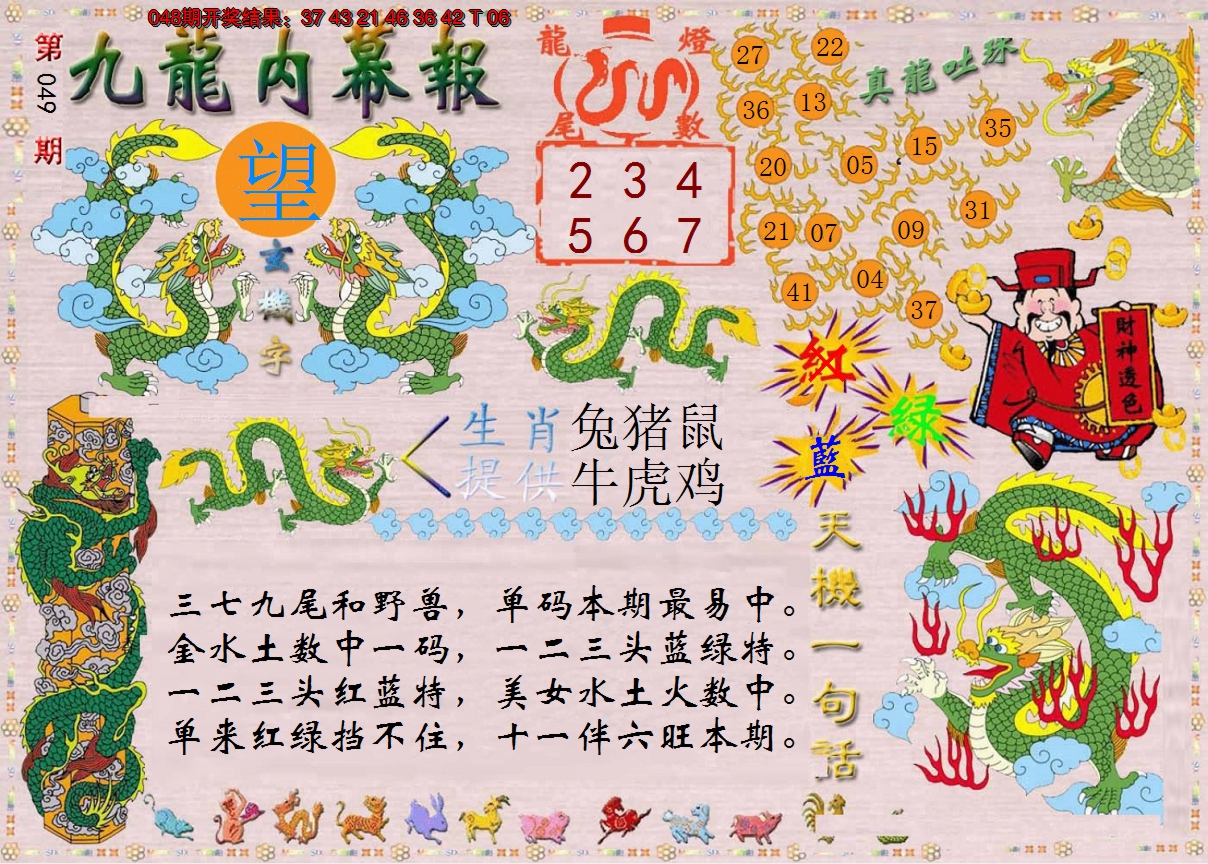 048期开奖结果：37 43 21 46 36 42 T 06
第049期
九龍内幕報
望
玄機字
龍燈
尾數
2 3 4
5 6 7
真龍吐珠
27
22
36
13
35
15
20
05
31
21
07
09
41
04
37
財神透色
紅
绿
藍
生肖
提供
兔猪鼠
牛虎鸡
天機一句話
三七九尾和野兽，单码本期最易中。
金水土数中一码，一二三头蓝绿特。
一二三头红蓝特，美女水土火数中。
单来红绿挡不住，十一伴六旺本期。